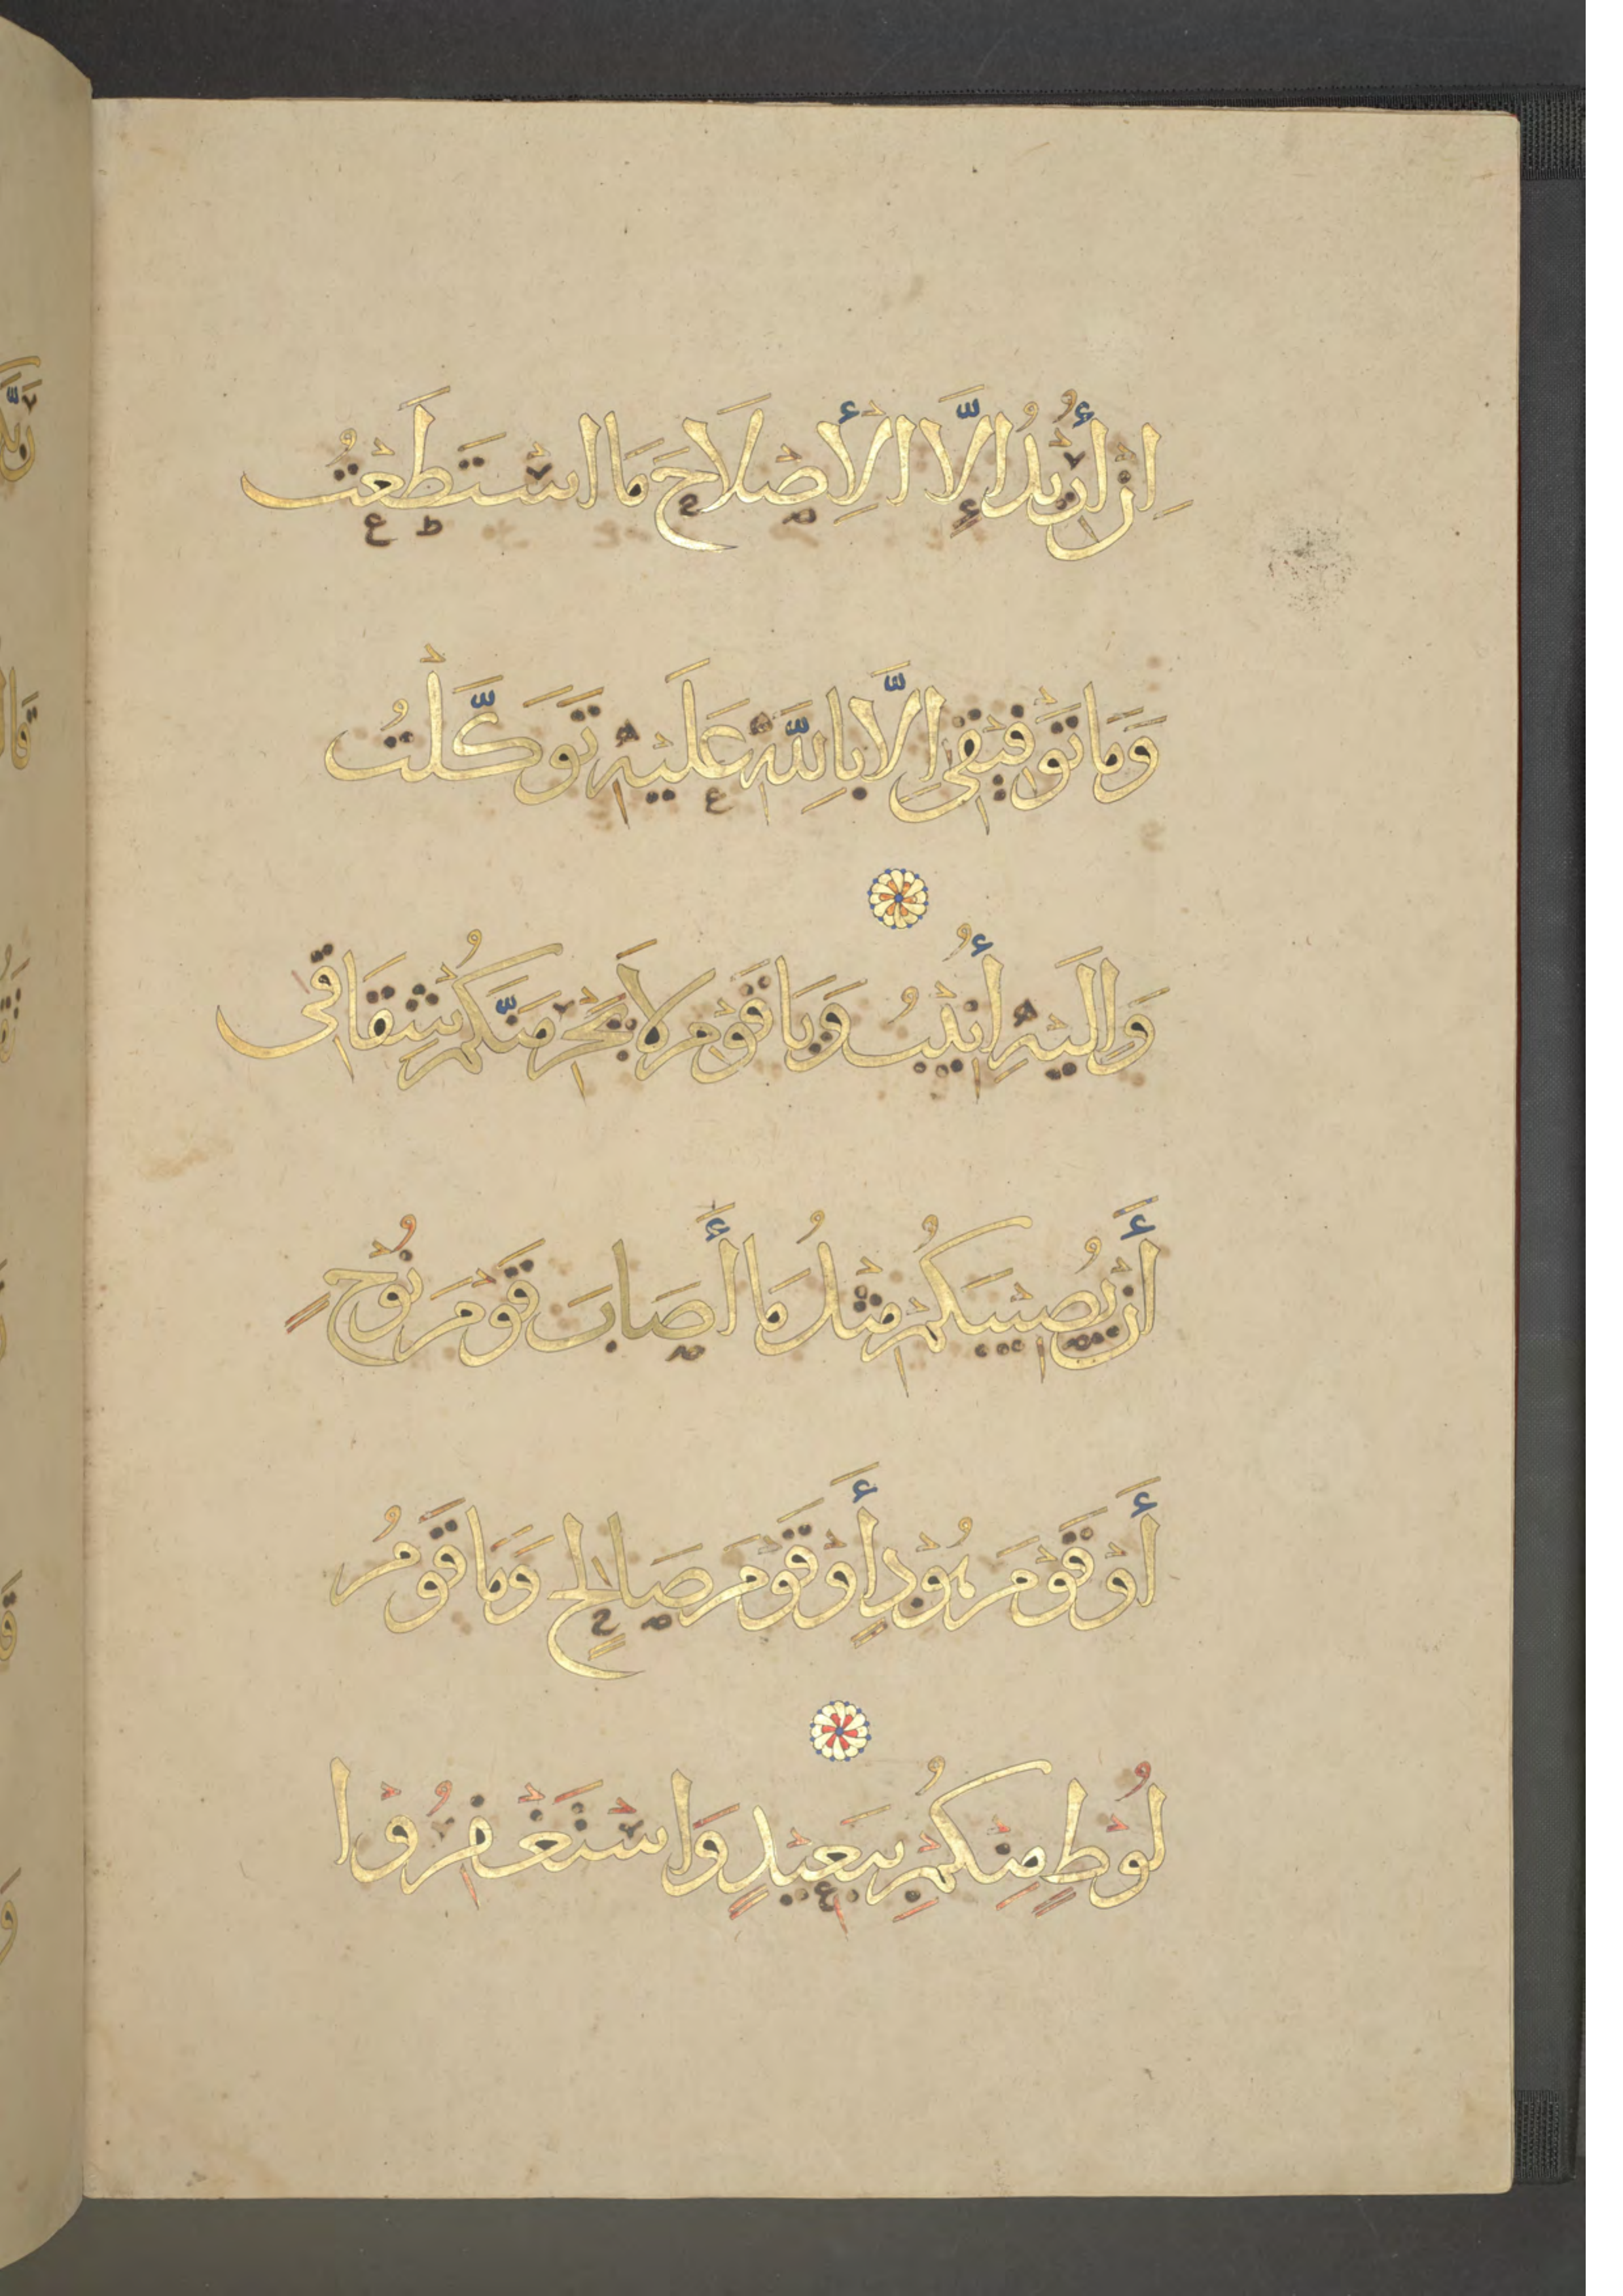 اِنْ أُرِيْدُ اِلَّا الْأِصْلَاحَ مَا اسْتَطَعْتُ
وَمَا تَوْفِيْقِى اِلَّا بِاللَّهِ عَلَيْهِ تَوَكَّلْتُ
وَاِلَيْهِ أُنِيْبُ وَيَا قَوْمِ لَا يَجْرِمَنَّكُمْ شِقَاقِى
أَنْ يُصِيْبَكُمْ مِثْلُ مَا أَصَابَ قَوْمَ نُوْحٍ
أَوْ قَوْمَ هُوْدٍ أَوْ قَوْمَ صَالِحٍ وَمَا قَوْمُ
لُوْطٍ مِنْكُمْ بِبَعِيْدٍ وَاسْتَغْفِرُوْا